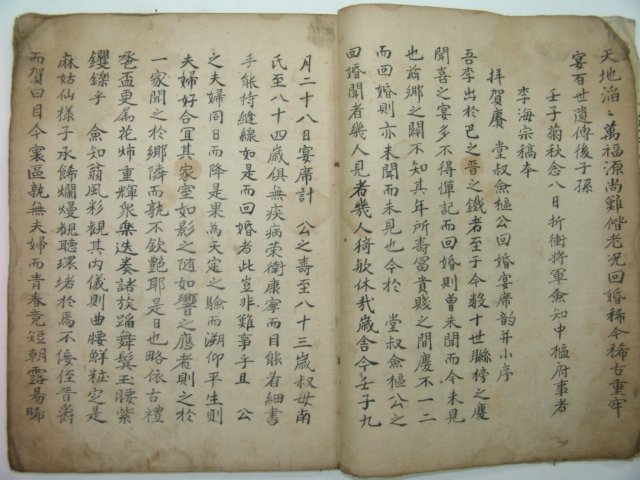 天地滔〻萬福源尚難偕老況回婚稀今稀古重牢
宴百世遺傳後子孫
壬子菊秋念八日折衝將軍僉知中樞府事者
李海宗稿本
拜賀慶 堂叔僉樞公回婚宴席韵并小序
吾李出於巴之晋之鐵者至于今数十世聯榜之慶
聞喜之宴多不得憚記而回婚則曾未聞而今未見
也翁鄉之闢不知其年所壽冨貴賤之間慶不一二
而回婚則亦未聞而未見也今於 堂叔僉樞公之
回婚聞者幾人見者幾人猗歟休我歲舍今壬子九
月二十八日宴席計 公之壽至八十三歲叔母南
氏至八十四歲俱無疾病荣衛康寧而目能看細書
手能持縫線如是而回婚者此豈非難事乎且 公
之夫婦同日而降是果為天定之驗而溯仰平生則
夫婦好合宜其家室如影之随如響之應者則之於
一家聞之於鄉隣而孰不欽艶耶是日也略依古禮
卺盃更属花燭重輝衆樂迭奏諸族蹈舞鬂玉腰紫
鑼鑠乎 僉知翁風彩觀其内儀則曲腰鮮粧定是
麻姑仙樣子承餙爛熳觀聽環堵於焉不佞侄晋爵
而賀曰目今寰區孰無夫婦而青春竟短朝露易晞